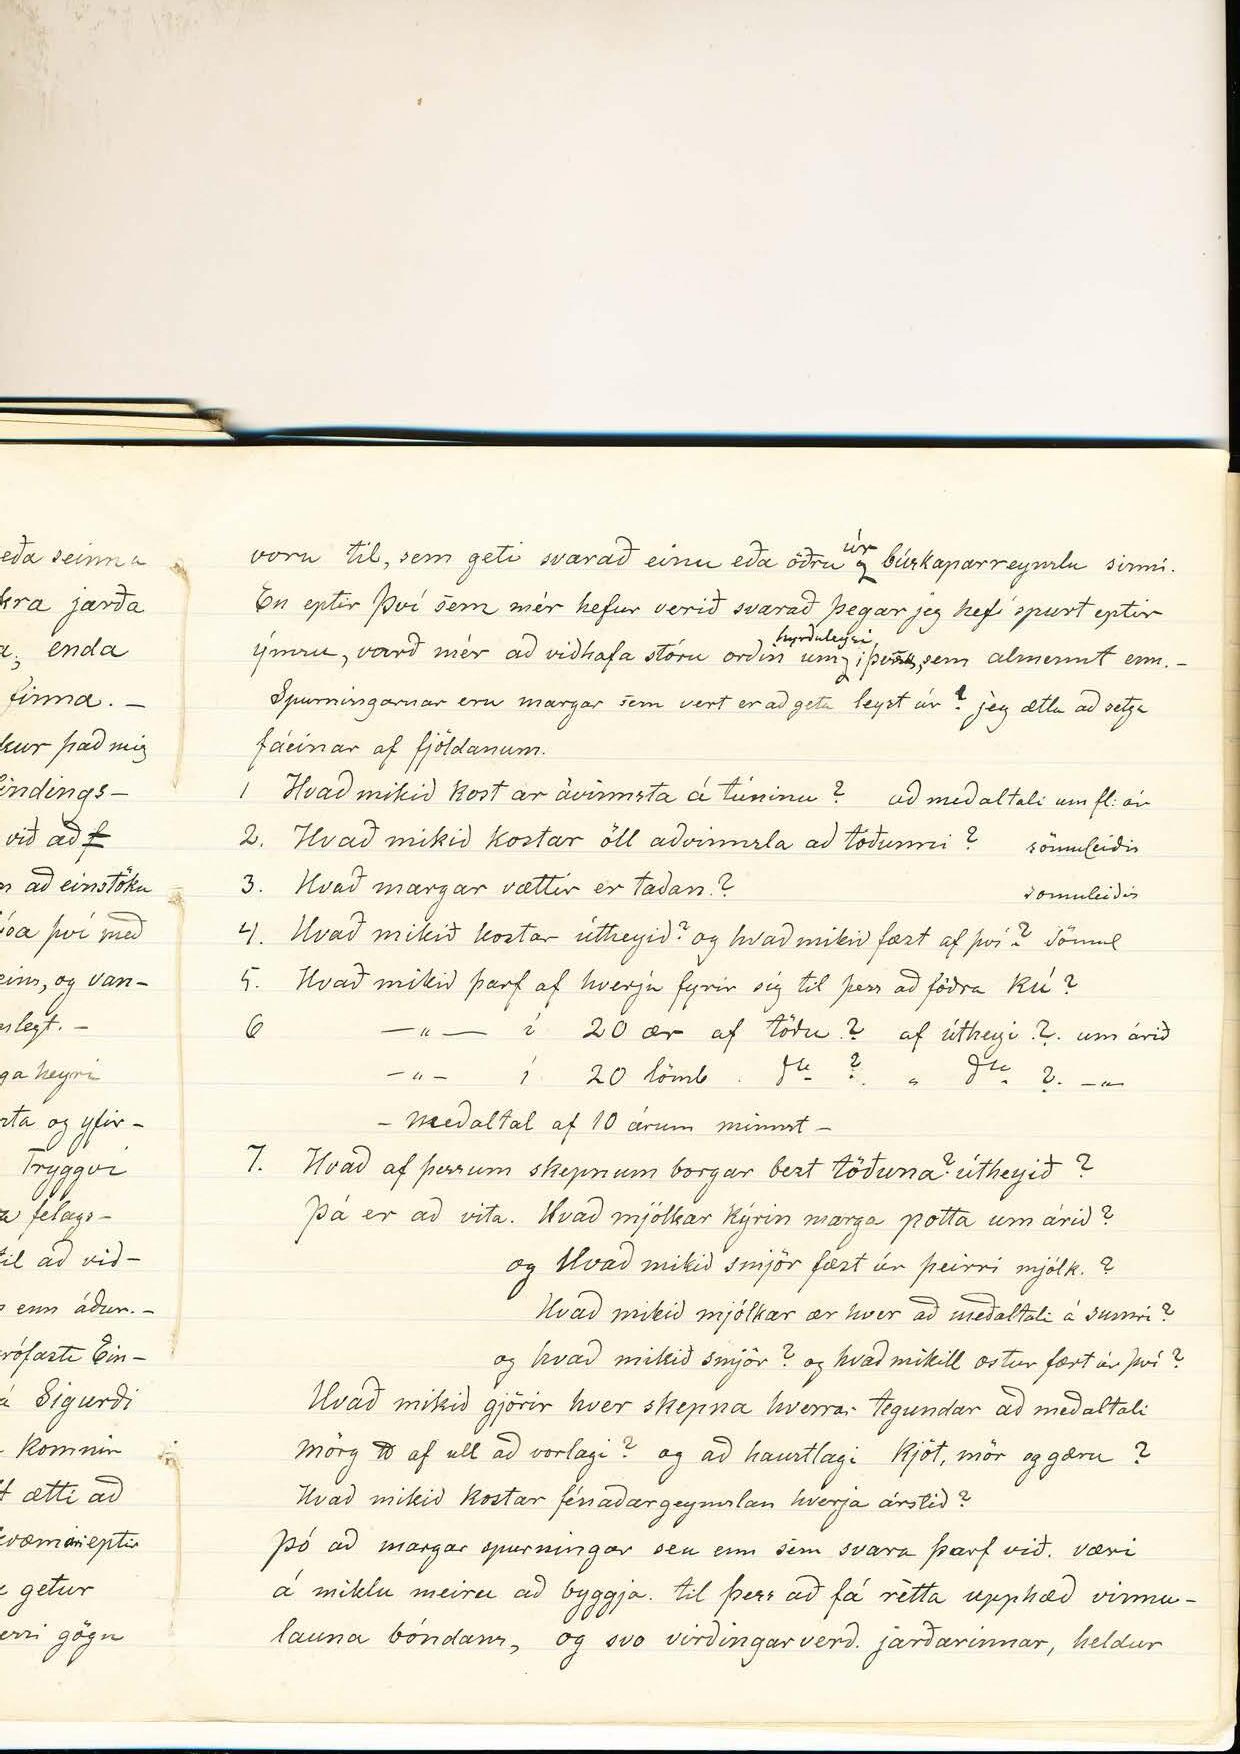 eða seinna
kra jarða
a; enda
finna. —
kur það mig
indings-
við að f
að einstöku
óa því með
eins, og van-
slegt. —
ga heyri
sta og yfir-
Tryggvi
a felags-
til að við-
enn áður. -
rófaste Ein-
á Sigurði
komnir
ætti að
kvæmdir eptir
getur
erri gögn
voru til, sem geti svarað einu eða öðru úr búskaparreynslu sinni.
En eptir því sem mér hefur verið svarað þegar jeg hefi spurt eptir
ýmsu, varð mér að viðhafa stóru orðin um hyrðuleysi í þessu, sem almennt enn. -
Spurningarnar eru margar sem vert er að geta leyst úr? jeg ætla að setja
fáeinar af fjöldanum.
1 Hvað mikið kostar ávinnsla á túninu? að meðaltali um fl: ár
2. Hvað mikið kostar öll aðvinnsla að töðunni? sömuleiðis
3. Hvað margar vættir er taðan? sömuleiðis
4. Hvað mikið kostar útheyið? og hvað mikið fæst af því? sömul
5. Hvað mikið þarf af hverju fyrir sig til þess að fóðra kú?
6 —„— í 20 ær af töðu? af útheyi? um árið
—„— í 20 lömb do ? „ do ? —„—
- meðaltal af 10 árum minnst -
7. Hvað af þessum skepnum borgar bezt töðuna? útheyið?
Þá er að vita. Hvað mjólkar kýrin marga potta um árið?
og Hvað mikið smjör fæst úr þeirri mjólk.?
Hvað mikið mjólkar ær hver að meðaltali á sumri?
og hvað mikið smjör? og hvað mikill ostur fæst úr því?
Hvað mikið gjörir hver skepna hverrar tegundar að meðaltali
mörg ℔ af ull að vorlagi? og að haustlagi kjöt, mör og gæru?
Hvað mikið kostar fénaðargeymslan hverja árstíð?
Þó að margar spurningar séu enn sem svara þarf við. væri
á miklu meiru að byggja. til þess að fá rétta upphæð vinnu-
launa bóndans, og svo virðingarverð. jarðarinnar, heldur